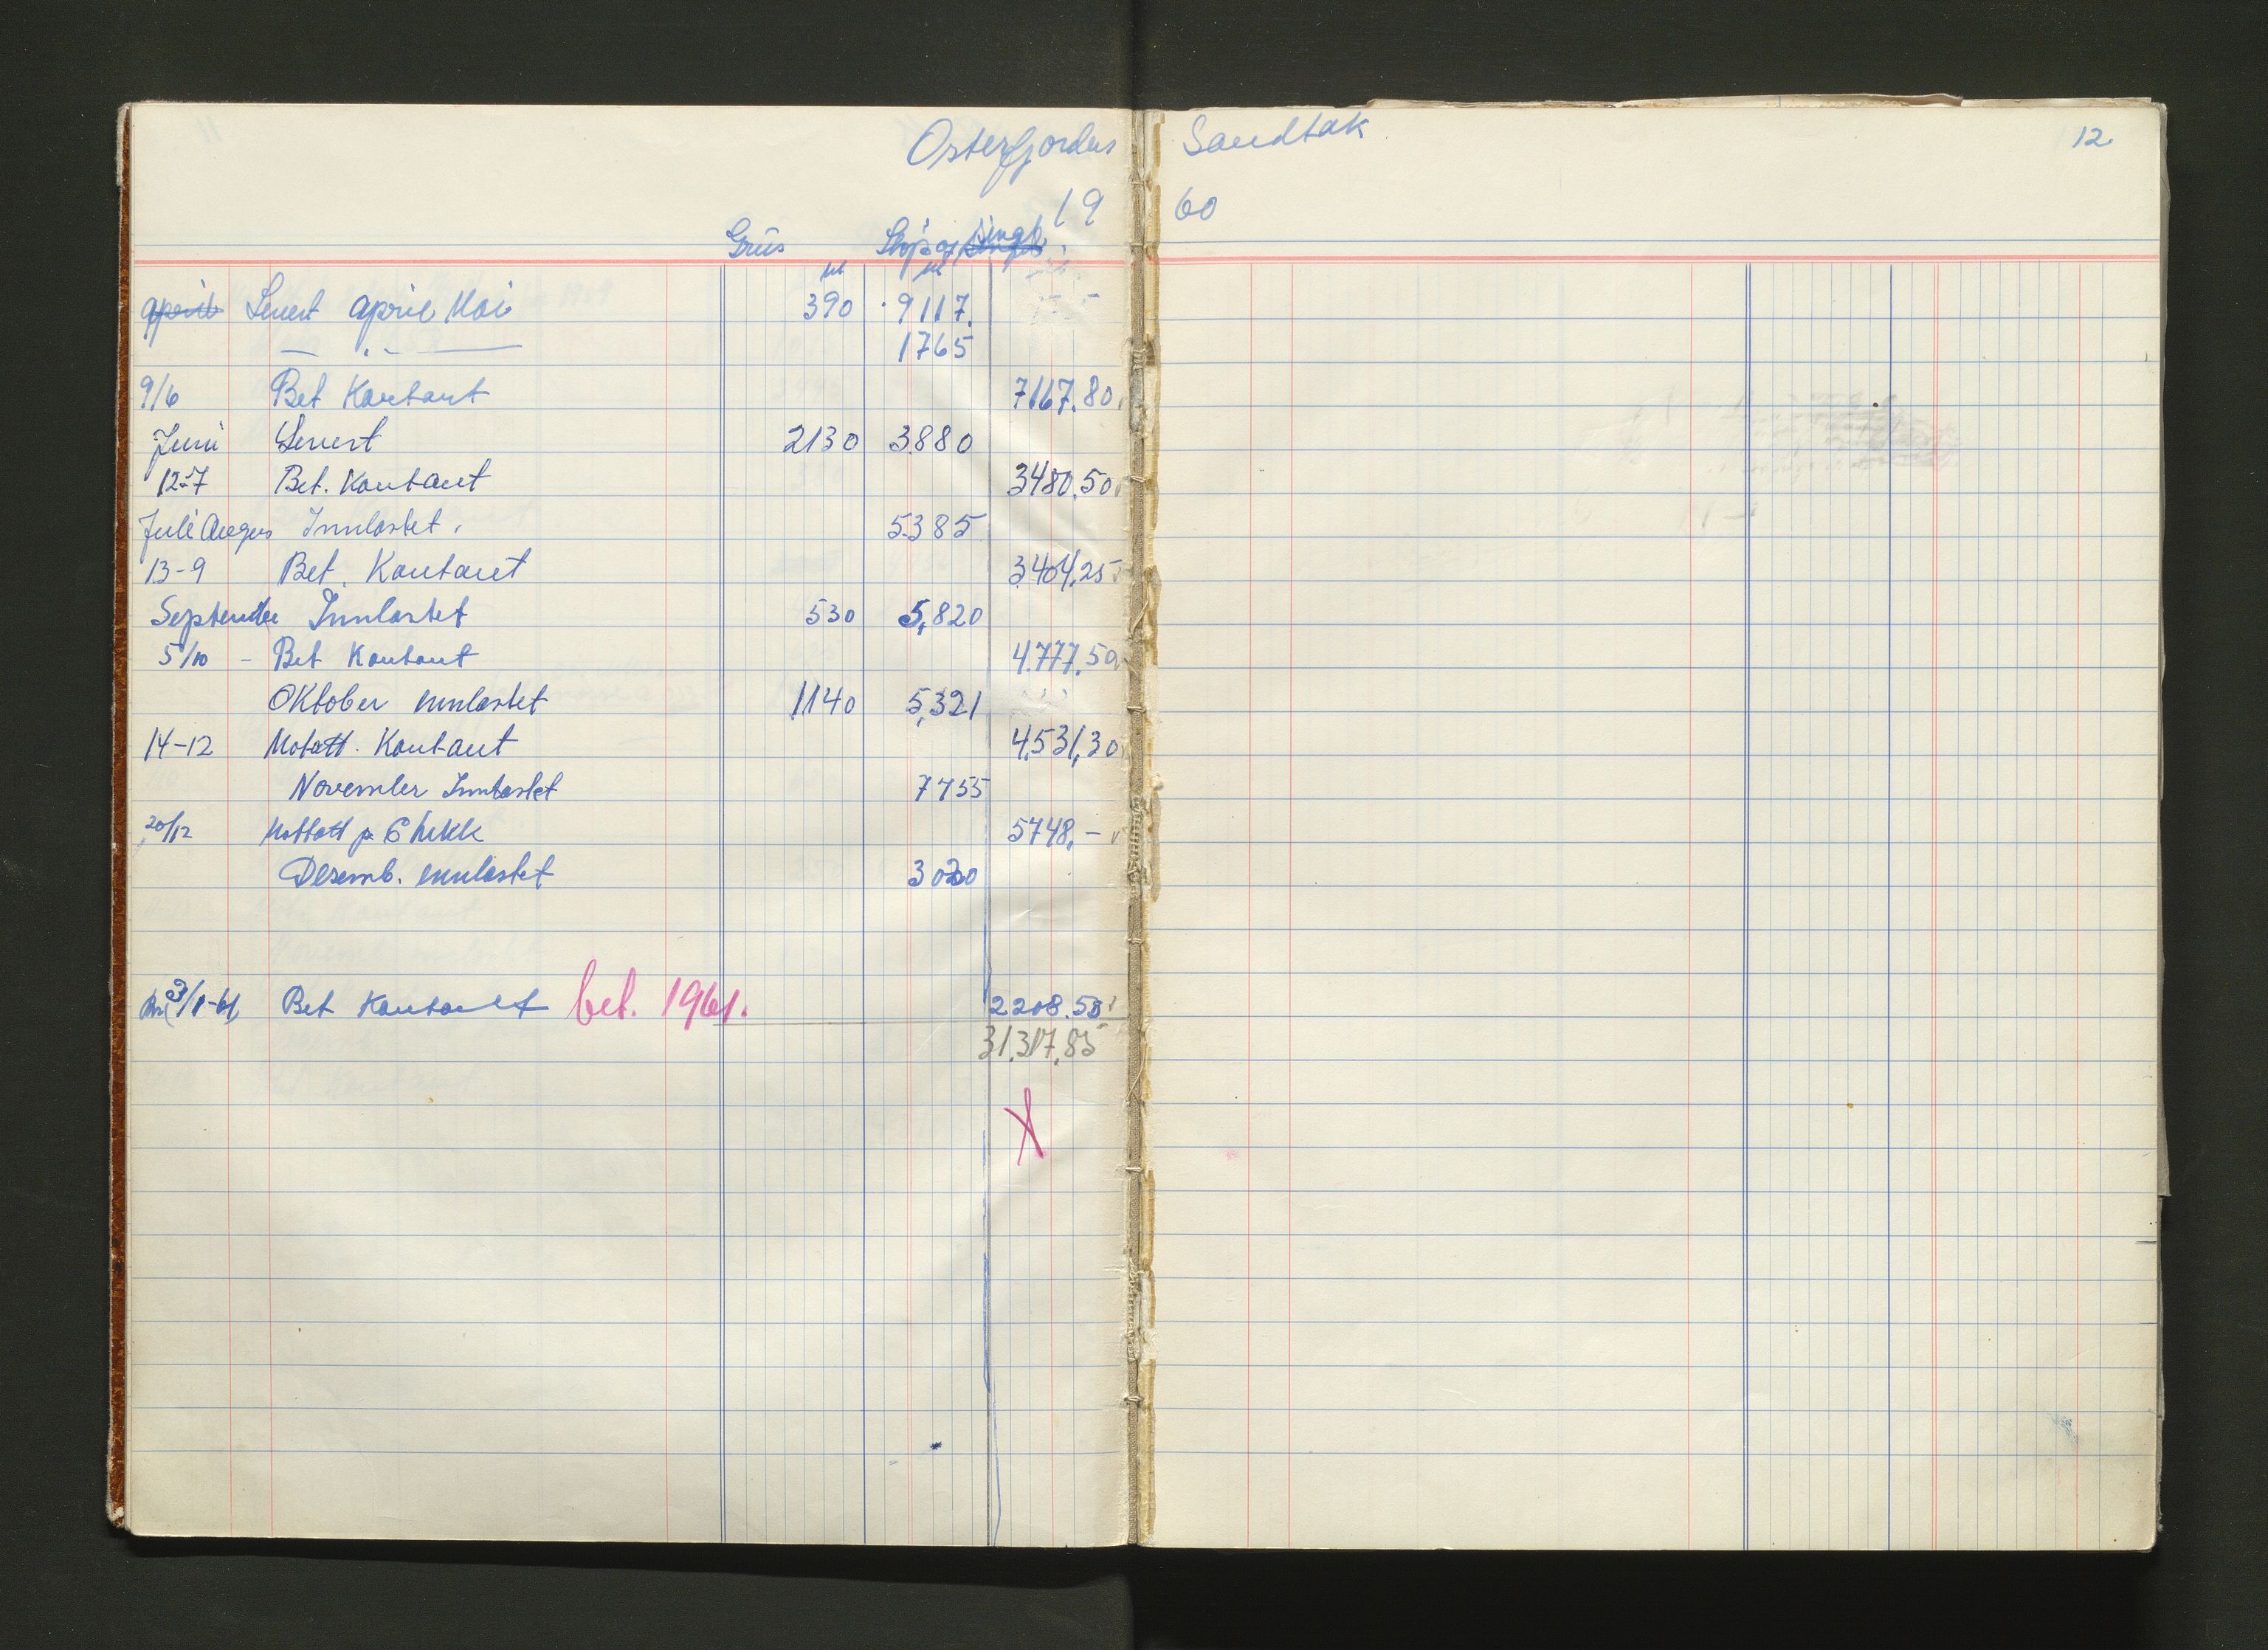 Osterfjordens Sandtak 12
19 60
Grus Støp og singl
hl hl
april Levert april Mai 390 9117.
— " — 1765
9/6 Bet Kontant 7167.80
Juni Levert 2130 3880
12-7 Bet. Kontant 3480.50
Juli Augus Innlastet. 5385
13-9 Bet. Kontant 3.404,25
September Innlastet 530 5,820
5/10 - Bet Kontant 4.777.50
Oktober innlastet 1140 5,321
14-12 Motatt. Kontant 4.531,30
November Innlastet 7755
20/12 Mottatt p. Chekk 5748,-
Desemb. innlastet 3020
3/1-61 Bet Kontant bet. 1961. 2208.50
31.317.85
X